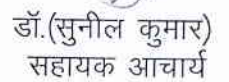 डॉ.(सुनील कुमार)
सहायक आचार्य